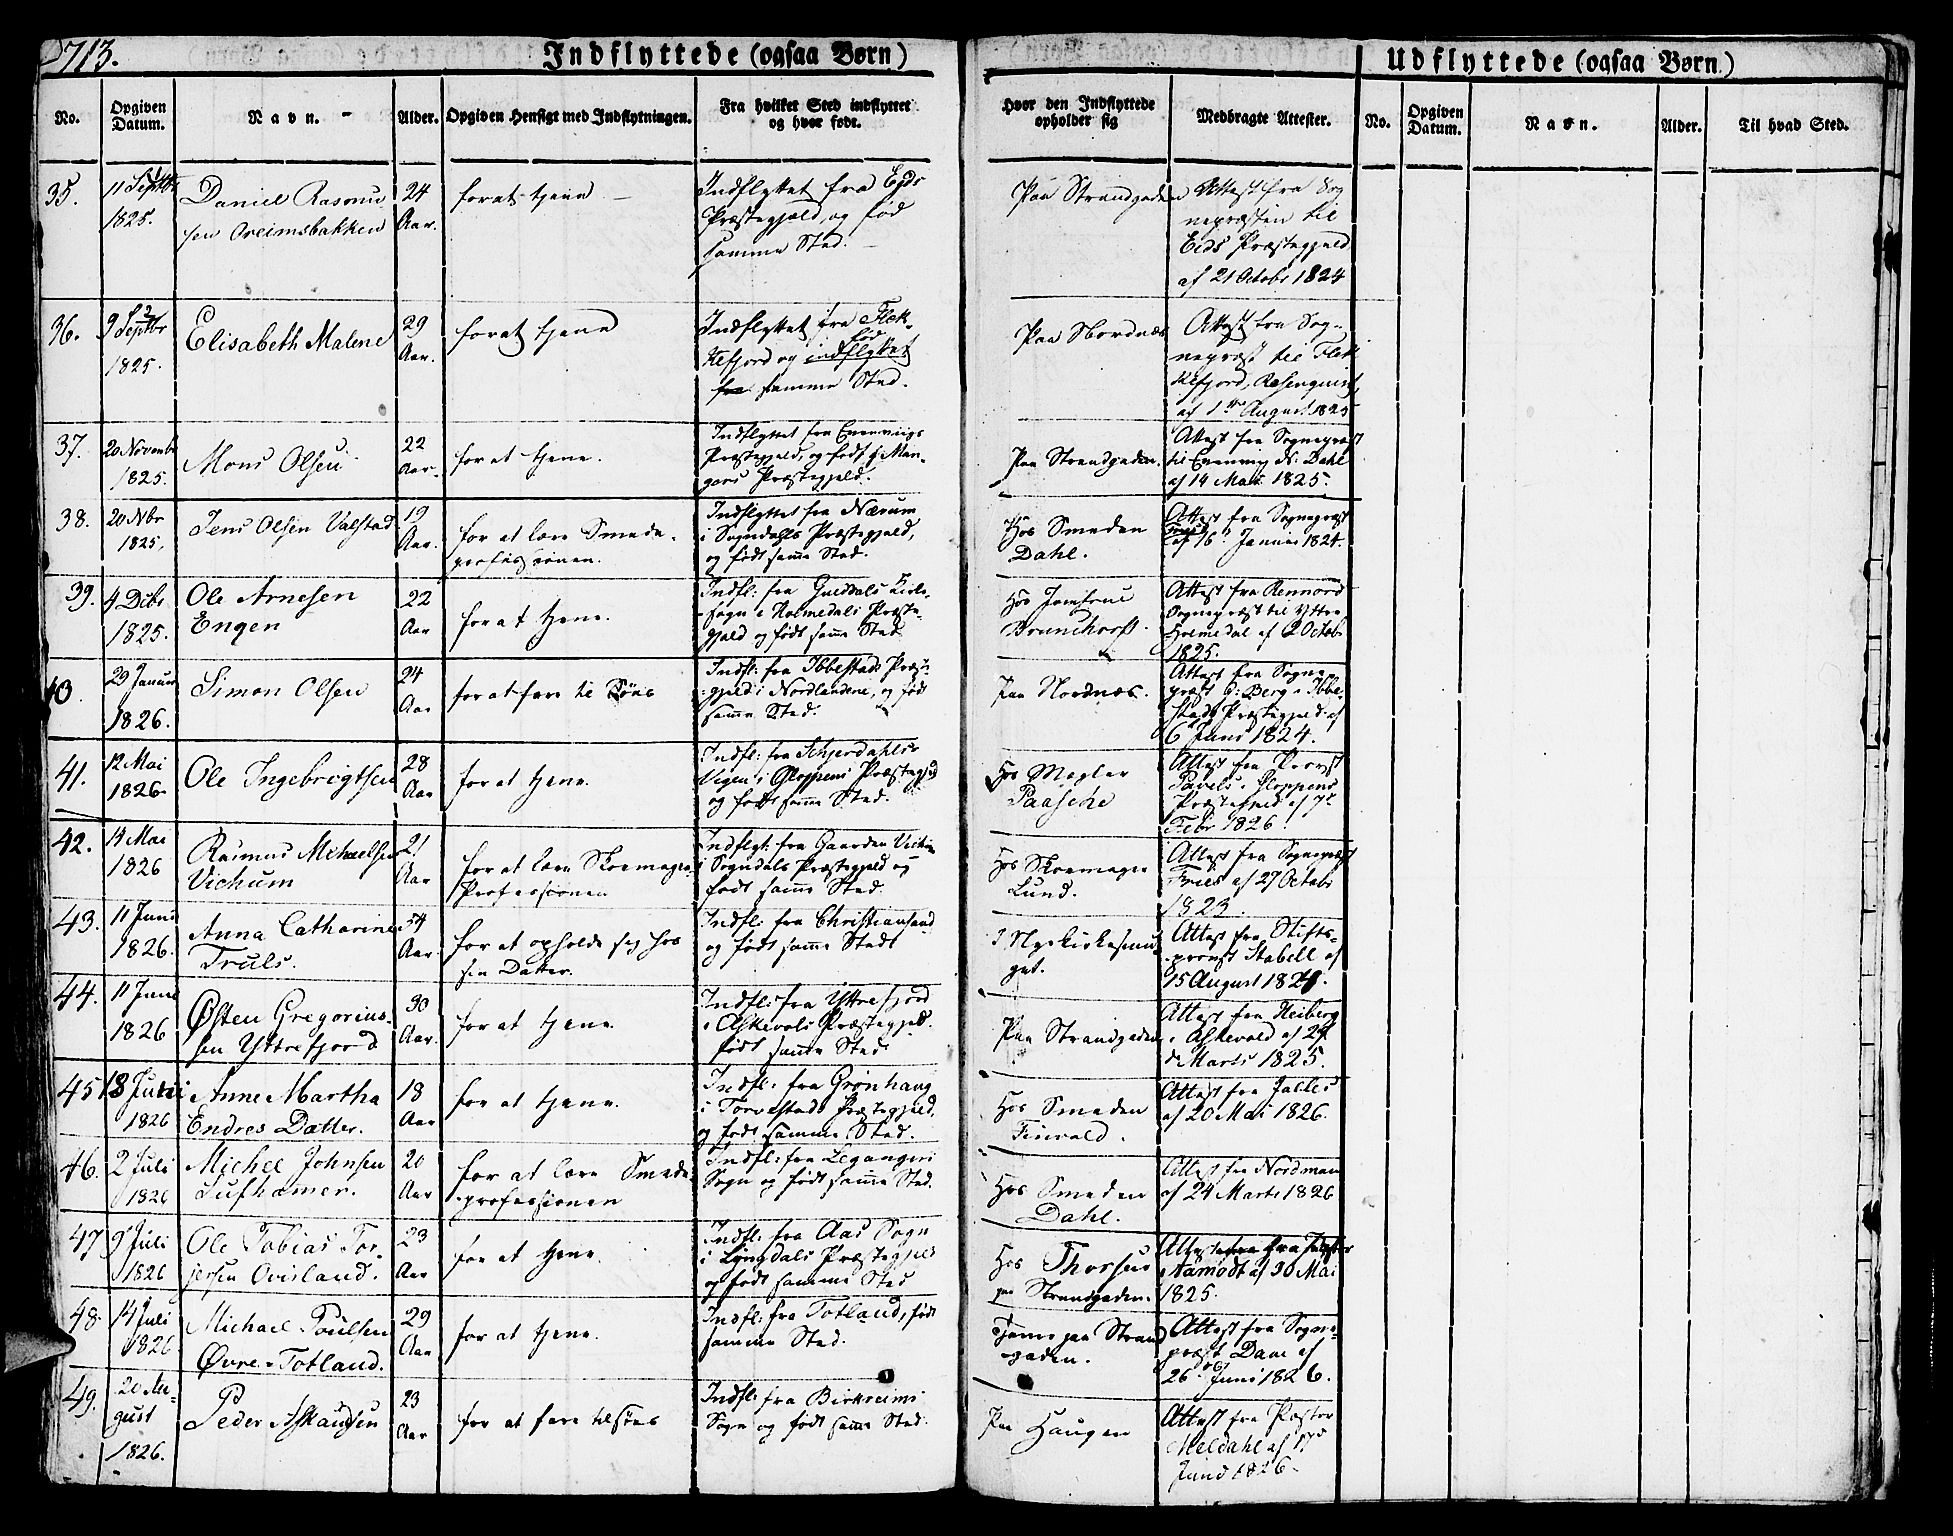 713.
Indflyttede (ogsaa Børn)
Udflyttede (ogsaa Børn.)
No.
Opgiven Datum.
Navn.
Alder.
Opgiven Hensigt med Indflytningen.
Fra hvilket Sted indflyttet og hvor født.
Hvor den Indflyttede opholder sig
Medbragte Attester.
No.
Opgiven Datum.
Navn.
Alder.
Til hvad Sted.
35.
11 Septbr
1825.
Daniel Rasmu
sen Oreimsbakken
24
Aar.
for at tjene
Indflyttet fra Eids
Præstegjæld, og fød
samme Sted.
Paa Strandgaden
Attest fra Sog
nepræsten til
Eids Præstegjeld
af 21 Octobr 1824
36.
9 Septbr
1825.
Elisabeth Malene
29
Aar.
for at tjene
Indflyttet fra Flek-
kefjord og indflyttet
fød
fra samme Sted.
Paa Nordnæs
Attest fra Sog-
nepræst til Flek
kefjord, Rosenqvist,
af 1ste August 1825
37.
20 Novembr
1825.
Mons Olsen
22
Aar.
for at tjene.
Indflyttet fra Evenvigs
Præstegjeld, og født i Man-
gers Præstegjeld.
Paa Strandgaden.
Attest fra Sognepræst
til Evenvig N: Dahl
af 14 Mai 1825.
38.
20 Nbr
1825.
Jens Olsen Valstad
19
Aar.
for at lære Smede-
professionen.
Indflyttet fra Nærum
i Sogndals Præstegjeld,
og født samme Sted.
Hos Smeden
Dahl.
Attest fra Sognepræst
Fries
af 16 Januar 1824.
39.
4 Dcbr
1825.
Ole Arnesen
Engen
22
Aar
for at tjene.
Indfl: fra Guldals Kirke-
sogn i Holmedals Præste-
gjeld og født samme Sted.
Hos Jomfrue
Brunchorst.
Attest fra Rennord
Sognepræst til Yttre
Holmedal af 6 Octobr
1825.
40.
29 Januar
1826.
Simon Olsen
24
Aar
for at fare til Søes
Indfl: fra Ibbestads Præste-
gjeld i Nordlandene, og født
samme Sted.
Paa Nordnæs.
Attest fra Sogne-
præst C: Berg i Ibbe-
stads Præstegjeld af
6 Juni 1824.
41.
12 Mai
1826.
Ole Ingebrigtsen
28
Aar
for at tjene.
Indfl: fra Schjerdahls-
Vigen i Gloppens Præstegjeld
og født samme Sted.
Hos Megler
Paasche
Attest fra Provst
Pavels i Gloppens
Præstegjeld af 7de
Febr 1826.
42.
14 Mai
1826
Rasmus Michaelsen
Vichum
21
Aar
for at lære Skoemager
Professionen
Indflyt: fra Gaarden Vichum
i Sogndals Præstegjeld og
født samme Sted.
Hos Skoemager
Lund.
Attest fra Sognepræst
Fries af 27 Octobr
1823.
43.
11 Juni
1826.
Anna Catharine
Truls.
54
Aar.
for at opholde sig hos
sin Datter.
Indfl: fra Christiansand
og født samme Sted
I Nyekirkesmug
get.
Attest fra Stifts-
provst Stabell af
15 August 1821.
44.
11 Juni
1826
Østen Gregorius-
sen Yttrefjord
30
Aar.
for at tjene.
Indfl: fra Yttrefjord
i Askevols Præstegjeld.
født samme Sted
Paa Strandgaden
Attest fra Heiberg
i Askevold af 29
de Marts 1825.
45
18 Juni
1826
Anne Martha
Endres Datter.
18
Aar
for at tjene.
Indfl: fra Grønhaug
i Torvestads Præstegjeld,
og født samme Sted.
Hos Smeden
Finvold.
Attest fra
af 20 Mai 1826.
46.
2 Juli
1826
Michel Johnsen
Sufhamer.
20
Aar
for at lære Smede-
professionen
Indfl: fra Leganger
Sogn og født samme Sted.
Hos Smeden
Dahl.
Attest fra Nordman
af 24 Marts 1826
47
9 Juli
1826
Ole Tobias Tor-
jersen Ovisland.
23
Aar
for at tjene.
Indfl: fra Aas Sogn
i Lyngdals Præstegjeld
og født samme Sted
Hos Thorsen
paa Strandgaden.
Attest fra Pastor
Aamodt af 30 Mai
1825.
48.
14 Juli
1826
Michael Poulsen
Øvre-Totland.
29
Aar
for at tjene.
Indfl: fra Totland, født
samme Sted.
Tjener paa Strand
gaden.
Attest fra Sogne-
præst Dane af
26de Juni 1826.
49.
20 Au-
gust
1826.
Peder Aslaksen
23
Aar
for at fare tilsøes
Indfl: fra Birkreims
Sogn og født samme Sted.
Paa Haugen
Attest fra Pastor
Meldahl af 17de
Juni 1826.